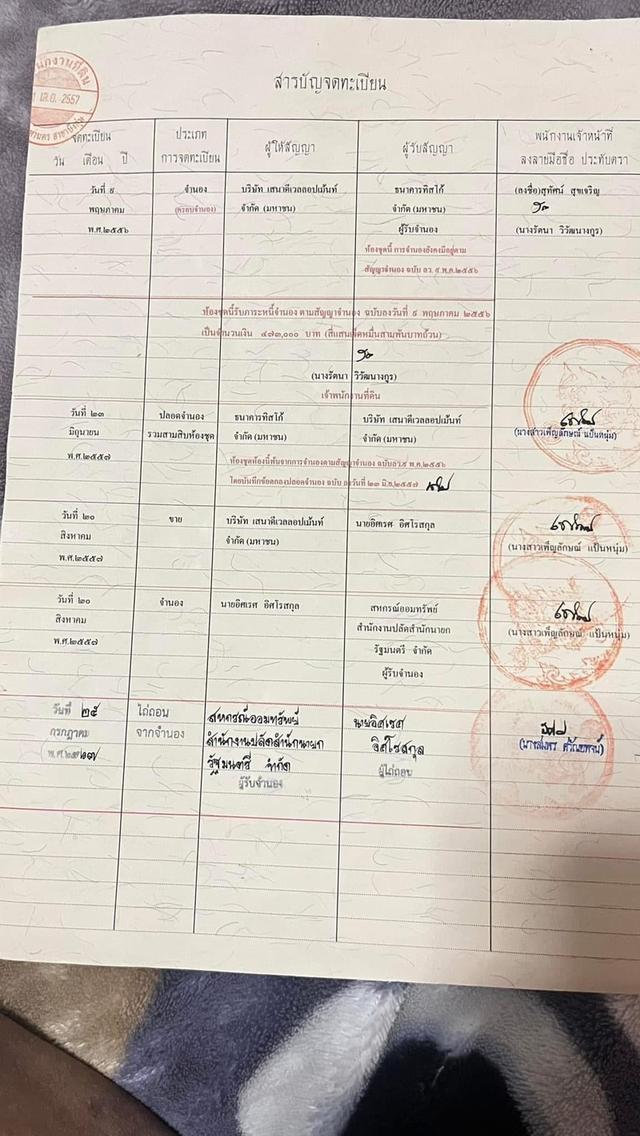 สารบัญจดทะเบียน
2557
จดทะเบียน
วัน เดือน ปี
ประเภท
การจดทะเบียน
ผู้ให้สัญญา
ผู้รับสัญญา
พนักงานเจ้าหน้าที่
ลงลายมือชื่อ ประทับตรา
วันที่ ๙
พฤษภาคม
พ.ศ.๒๕๕๖
จำนอง
(ครอบจำนอง)
บริษัท เสนาดีเวลลอปเม้นท์
จำกัด (มหาชน)
ธนาคารทิสโก้
จำกัด (มหาชน)
ผู้รับจำนอง
ห้องชุดนี้ การจำนองยังคงมีอยู่ตาม
สัญญาจำนอง ฉบับ ลว. ๙ พ.ค.๒๕๕๖
(ลงชื่อ)สุทัศน์ สุขเจริญ
(นางรัตนา วิวัฒนางกูร)
ห้องชุดนี้รับภาระหนี้จำนอง ตามสัญญาจำนอง ฉบับลงวันที่ ๙ พฤษภาคม ๒๕๕๖
เป็นจำนวนเงิน ๔๗๓,๐๐๐ บาท (สี่แสนเจ็ดหมื่นสามพันบาทถ้วน)
(นางรัตนา วิวัฒนางกูร)
เจ้าพนักงานที่ดิน
วันที่ ๒๓
มิถุนายน
พ.ศ.๒๕๕๗
ปลอดจำนอง
รวมสามสิบห้องชุด
ธนาคารทิสโก้
จำกัด (มหาชน)
บริษัท เสนาดีเวลลอปเม้นท์
จำกัด (มหาชน)
ห้องชุดห้องนี้พ้นจากการจำนองตามสัญญาจำนอง ฉบับลว.๙ พ.ค.๒๕๕๖
โดยบันทึกข้อตกลงปลอดจำนอง ฉบับ ลงวันที่ ๒๓ มิ.ย.๒๕๕๗
(นางสาวเพ็ญลักษณ์ แป้นหนุ่ม)
วันที่ ๒๐
สิงหาคม
พ.ศ.๒๕๕๗
ขาย
บริษัท เสนาดีเวลลอปเม้นท์
จำกัด (มหาชน)
นายอิศเรศ อิศโรสกุล
(นางสาวเพ็ญลักษณ์ แป้นหนุ่ม)
วันที่ ๒๐
สิงหาคม
พ.ศ.๒๕๕๗
จำนอง
นายอิศเรศ อิศโรสกุล
สหกรณ์ออมทรัพย์
สำนักงานปลัดสำนักนายก
รัฐมนตรี จำกัด
ผู้รับจำนอง
(นางสาวเพ็ญลักษณ์ แป้นหนุ่ม)
วันที่ ๒๕
กรกฎาคม
พ.ศ.๒๕๖๗
ไถ่ถอน
จากจำนอง
สหกรณ์ออมทรัพย์
สำนักงานปลัดสำนักนายก
รัฐมนตรี จำกัด
ผู้รับจำนอง
นายอิศเรศ
อิศโรสกุล
ผู้ไถ่ถอน